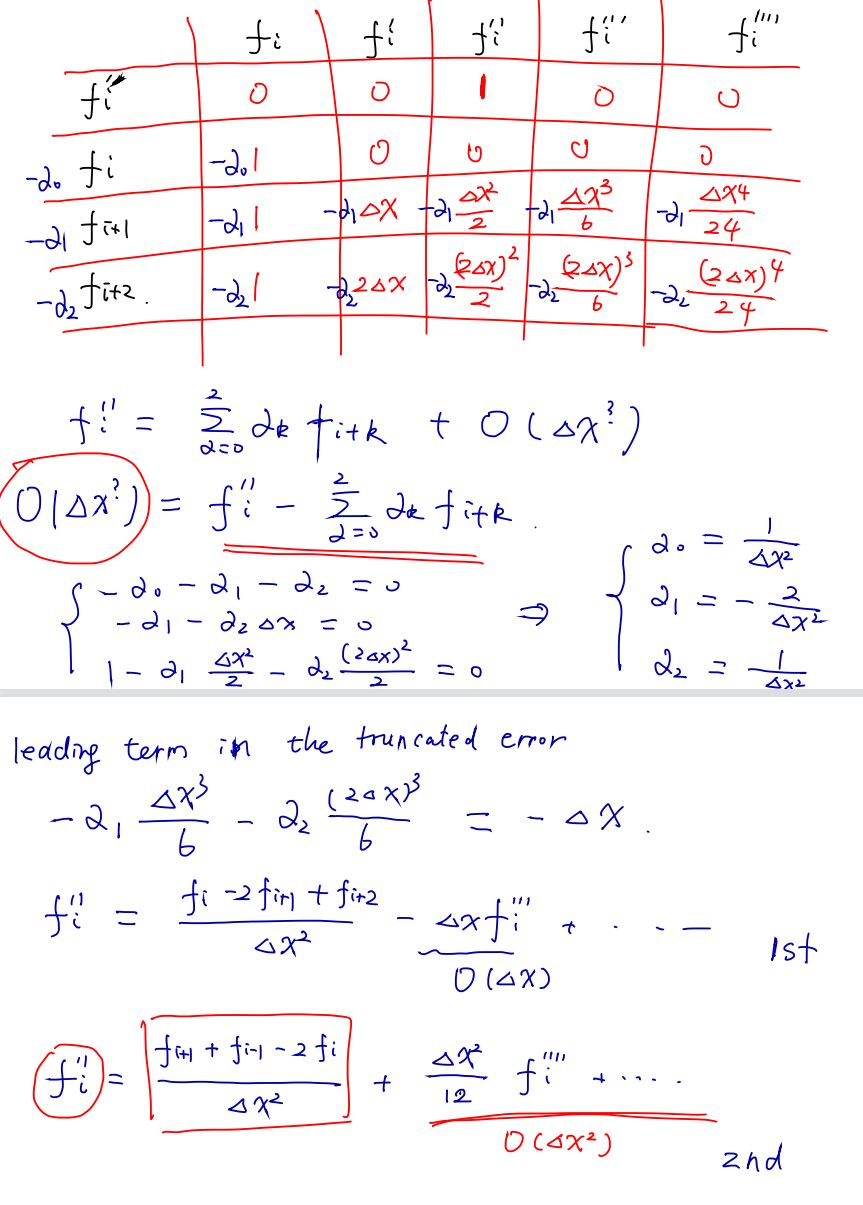 fᵢ fᵢ′ fᵢ″ fᵢ‴ fᵢ⁗
fᵢ″ 0 0 1 0 0
-α₀ fᵢ -α₀1 0 0 0 0
-α₁ fᵢ₊₁ -α₁1 -α₁Δx -α₁ Δx²/2 -α₁ Δx³/6 -α₁ Δx4/24
-α₂ fᵢ₊₂. -α₂1 -α₂2Δx -α₂ (2Δx)²/2 -α₂ (2Δx)³/6 -α₂ (2Δx)⁴/24
fᵢ″ = Σ_{α=0}^{2} αₖ fᵢ₊ₖ + O(Δx^?)
O(Δx^?) = fᵢ″ - Σ_{α=0}^{2} αₖ fᵢ₊ₖ.
{ -α₀ - α₁ - α₂ = 0
-α₁ - α₂ Δx = 0
1 - α₁ Δx²/2 - α₂ (2Δx)²/2 = 0
⇒ { α₀ = 1/Δx²
α₁ = - 2/Δx²
α₂ = 1/Δx²
leading term in the truncated error
-α₁ Δx³/6 - α₂ (2Δx)³/6 = - Δx.
fᵢ″ = (fᵢ -2fᵢ₊₁ + fᵢ₊₂)/Δx² - Δx fᵢ‴ + · · · —
O(Δx) 1st
fᵢ″ = (fᵢ₊₁ + fᵢ₋₁ - 2 fᵢ)/Δx² + Δx²/12 fᵢ⁗ + ....
O(Δx²)
2nd